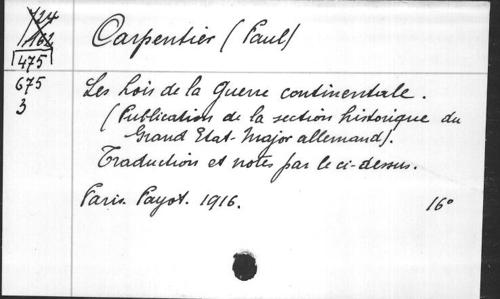 724
162
475
675
3
Carpentier (Paul)
Les Lois de la Guerre continentale.
(Publication de la section historique du
Grand Etat-Major allemand).
Traduction et notes par le ci-dessus.
Paris. Payot. 1916. 16°